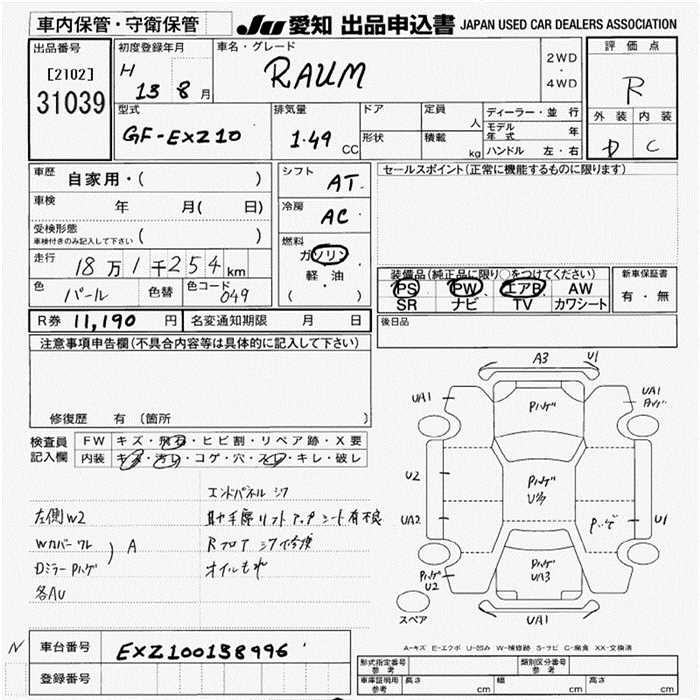 車内保管・守衛保管
JU 愛知 出品申込書 JAPAN USED CAR DEALERS ASSOCIATION
出品番号
[2102]
31039
初度登録年月
H 13 8 月
車名・グレード
RAUM
2WD
・
4WD
評価点
R
外装 内装
D C
型式
GF-EXZ10
排気量
1.49 CC
ドア
形状
定員 人
積載 kg
ディーラー・並行
モデル年式 年
ハンドル 左・右
車歴 自家用・( )
車検 年 月( 日)
受検形態
車検付きのみ記入して下さい ( )
走行 18万1千254km
色 パール 色替 色コード 049
シフト AT
冷房 AC
燃料
ガソリン
・
軽・油
( )
セールスポイント(正常に機能するものに限ります)
装備品(純正品に限り○をつけてください)
PS PW エアB AW
SR ナビ TV カワシート
新車保証書
有・無
R券 11,190 円 名変通知期限 月 日
後日品
注意事項申告欄(不具合内容等は具体的に記入して下さい)
修復歴 有 (箇所 )
検査員記入欄
FW キズ・飛石・ヒビ割・リペア跡・X要
内装 キズ・汚れ・コゲ・穴・スレ・キレ・破レ
エンドパネル シワ
左側W2 助手席リフトアップシート有 不良
Wカバー ワレ ) A Rフロア シワ 交換
Dミラー Pハゲ オイルもれ
各AU
A3 U1
UA1 UA1
Pハゲ
U2
Pハゲ
UA2 Pハゲ U1
Pハゲ Pハゲ
U2 UA3
スペア UA1
A-キズ E-エクボ U-凹み W-補修跡 S-サビ C-腐食 XX-交換済
N 車台番号 EXZ100138996
登録番号
型式指定番号 参考 類別区分番号 参考
車庫証明用 参考 長さ cm 幅 cm 高さ cm